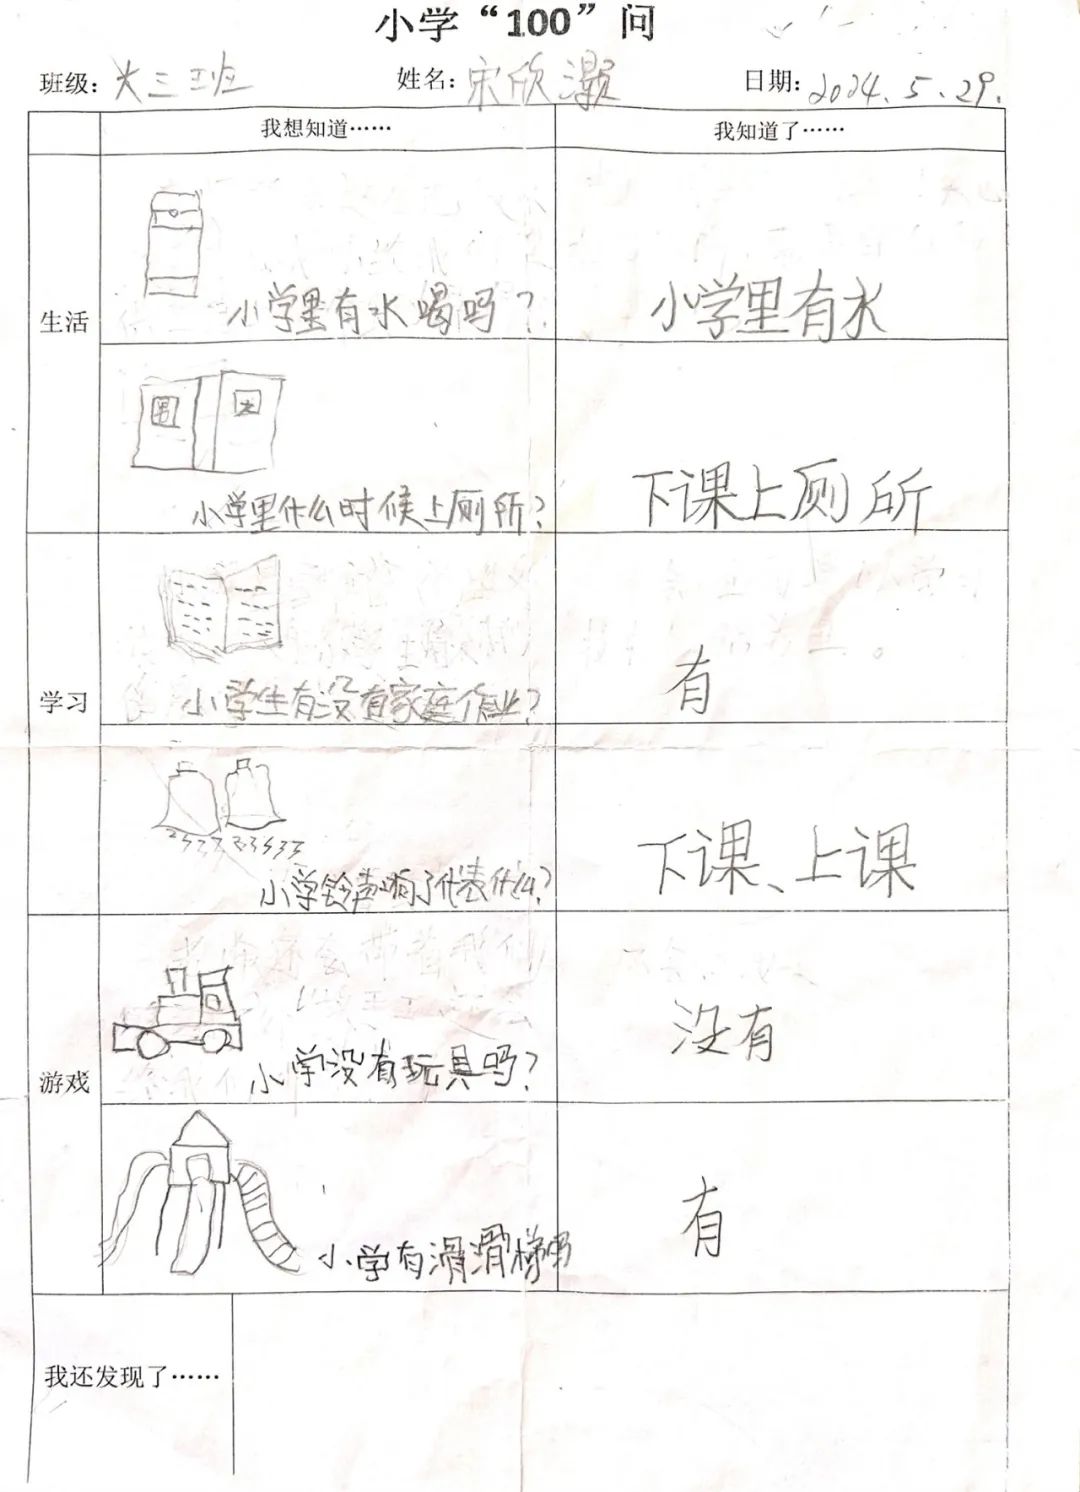 小学“100”问
班级：大三班 姓名：宋欣灏 日期：2024.5.29.
我想知道…… 我知道了……
生活
小学里有水喝吗？ 小学里有水
男 女
小学里什么时候上厕所？ 下课上厕所
学习
小学生有没有家庭作业？ 有
小学铃声响了代表什么？ 下课、上课
游戏
小学没有玩具吗？ 没有
小学有滑滑梯吗 有
我还发现了……